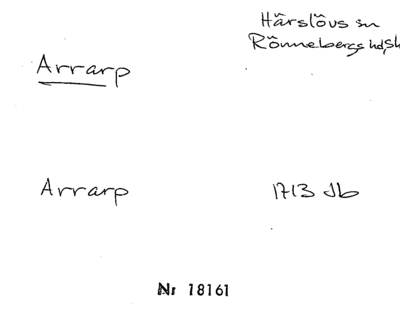 Härslövs sn
Rönnebergs hd, Sk
Arrarp
Arrarp 1713 Jb
Nr 18161